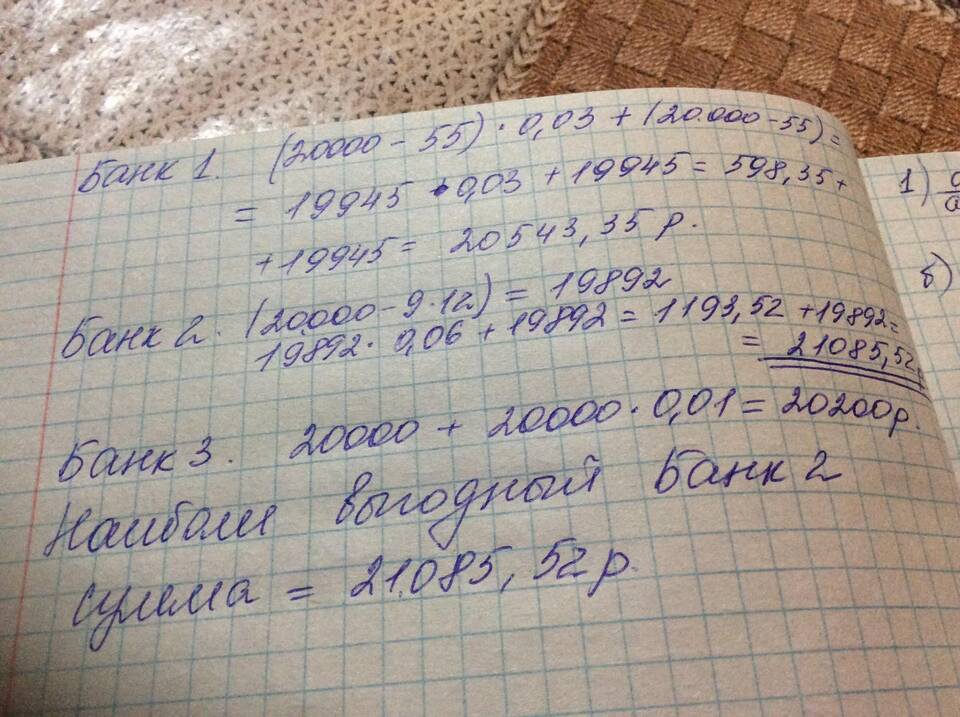 Банк 1. (20000 - 55) · 0,03 + (20.000 - 55) =
= 19945 · 0,03 + 19945 = 598,35 +
+ 19945 = 20543,35 р.
Банк 2. (20000 - 9·12) = 19892
19892 · 0,06 + 19892 = 1193,52 + 19892 =
= 21085,52
Банк 3. 20000 + 20000 · 0,01 = 20200р.
Наиболи выгодный Банк 2
сумма = 21085,52 р.
1)
б)